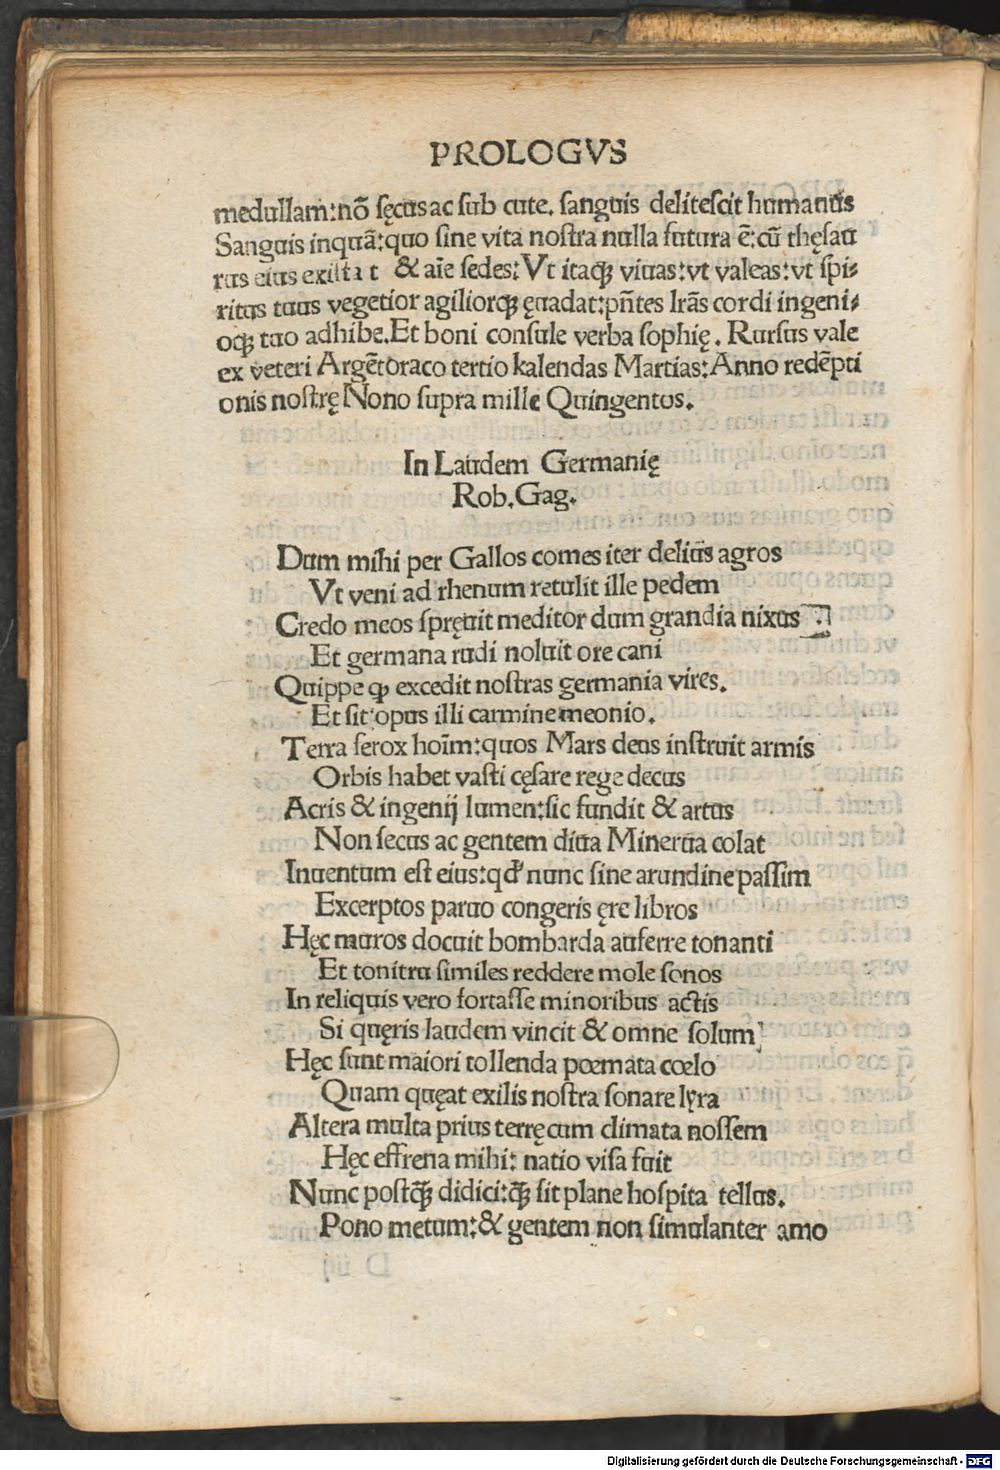 PROLOGVS
medullam:nõ ſęcus ac ſub cute. ſanguis deliteſcit humanus
Sanguis inquã:quo ſine vita noſtra nulla futura ẽ:cũ theſau
rus eius exiſtat & aĩe ſedes: Vt itaqꝫ viuas:vt valeas:vt ſpi-
ritus tuus vegetior agiliorqꝫ ęuadat:pñtes lrãs cordi ingeni-
oqꝫ tuo adhibe.Et boni conſule verba ſophię. Rurſus vale
ex veteri Argẽtoraco tertio kalendas Martias: Anno redẽpti
onis noſtrę Nono ſupra mille Quingentos.
In Laudem Germanię
Rob. Gag.
Dum mihi per Gallos comes iter delius agros
Vt veni ad rhenum retulit ille pedem
Credo meos ſpręuit meditor dum grandia nixus
Et germana rudi noluit ore cani
Quippe ꝙ excedit noſtras germania vires.
Et ſit opus illi carmine meonio.
Terra ferox hoĩm:quos Mars deus inſtruit armis
Orbis habet vaſti cęſare rege decus
Acris & ingenij lumen:ſic fundit & artus
Non ſecus ac gentem diua Minerua colat
Inuentum eſt eius:qd' nunc ſine arundine paſſim
Excerptos paruo congeris ęre libros
Hęc muros docuit bombarda auferre tonanti
Et tonitru ſimiles reddere mole ſonos
In reliquis vero fortaſſe minoribus actis
Si quęris laudem vincit & omne ſolum
Hęc ſunt maiori tollenda poemata cœlo
Quam quęat exilis noſtra ſonare lyra
Altera multa prius terrę cum climata noſſem
Hęc effrena mihi: natio viſa fuit
Nunc poſtꝙ̃ didici:ꝙ̃ ſit plane hoſpita tellus.
Pono metum:& gentem non ſimulanter amo
Digitalisierung gefördert durch die Deutsche Forschungsgemeinschaft - DFG